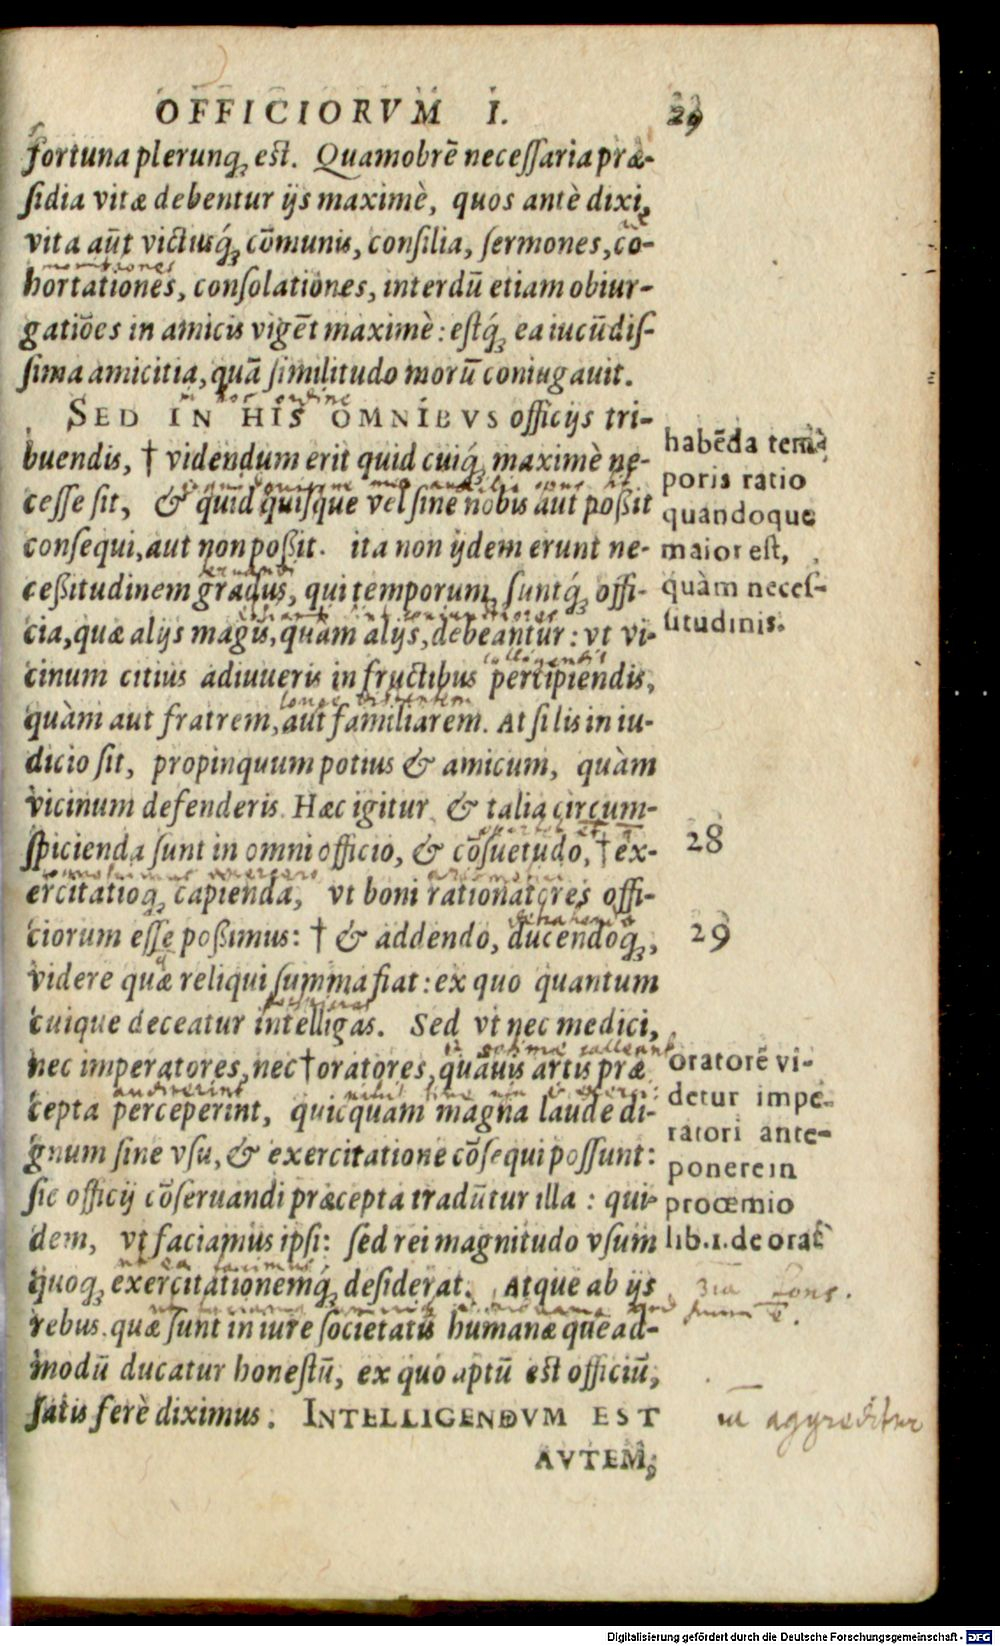 OFFICIORVM I. 29
fortuna plerunq; est. Quamobrē necessaria præ-
sidia vitæ debentur ijs maximè, quos antè dixi,
vita aūt victusq́; cōmunis, consilia, sermones, co-
hortationes, consolationes, interdū etiam obiur-
gatiōes in amicis vigēt maximè: estq́; ea iucūdis-
sima amicitia, quā similitudo morū coniugauit.
SED IN HIS OMNIBVS officijs tri-
buendis, † videndum erit quid cuiq́; maximè ne-
cesse sit, & quid quisque vel sine nobis aut poßit
consequi, aut non poßit. ita non ijdem erunt ne-
ceßitudinem gradus, qui temporum, suntq́; offi-
cia, quæ alijs magis, quàm alijs, debeantur: vt vi-
cinum citius adiuueris in fructibus percipiendis,
quàm aut fratrem, aut familiarem. At si lis in iu-
dicio sit, propinquum potius & amicum, quàm
vicinum defenderis. Hæc igitur & talia circum-
spicienda sunt in omni officio, & cōsuetudo, † ex-
ercitatioq; capienda, vt boni rationatores offi-
ciorum esse poßimus: † & addendo, ducendoq;,
videre quæ reliqui summa fiat: ex quo quantum
cuique deceatur intelligas. Sed vt nec medici,
nec imperatores, nec † oratores, quāuis artis præ
cepta perceperint, quicquam magna laude di-
gnum sine vsu, & exercitatione cōsequi possunt:
sic officij cōseruandi præcepta tradūtur illa: qui-
dem, vt faciamus ipsi: sed rei magnitudo vsum
quoq; exercitationemq́; desiderat. Atque ab ijs
rebus quæ sunt in iure societatis humanæ quead-
modū ducatur honestū, ex quo aptū est officiū,
satis ferè diximus. INTELLIGENDVM EST
AVTEM,
habēda tem-
poris ratio
quandoque
maior est,
quàm neces-
situdinis.
28
29
oratorē vi-
detur impe-
ratori ante-
ponere in
prooemio
lib.1.de orat
aggreditur